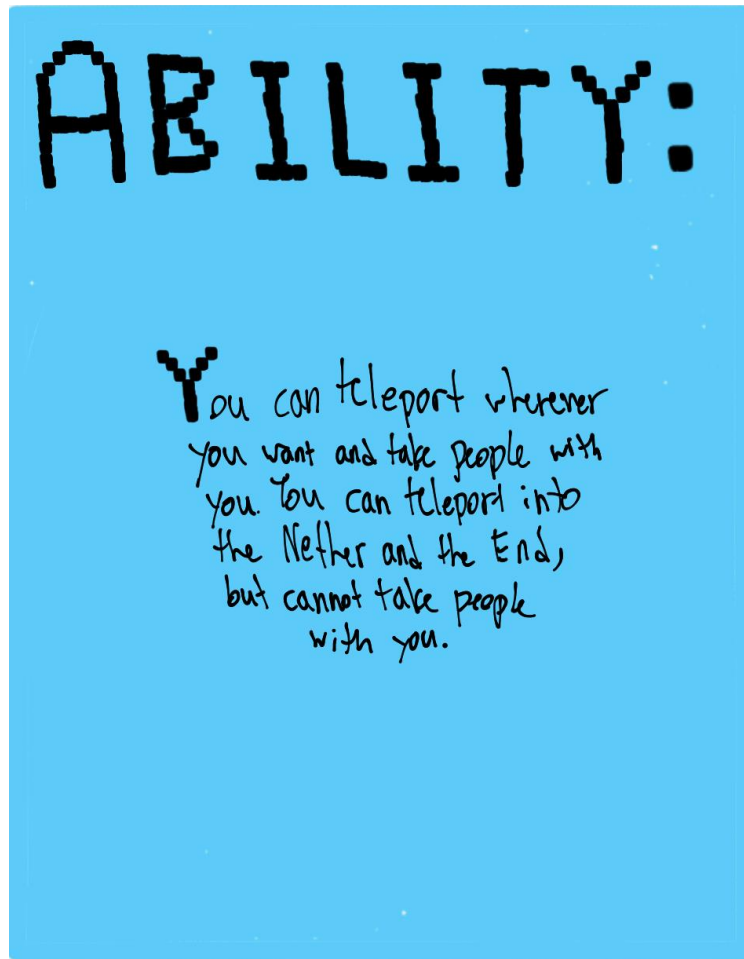 ABILITY:
You can teleport wherever
you want and take people with
you. You can teleport into
the Nether and the End,
but cannot take people
with you.